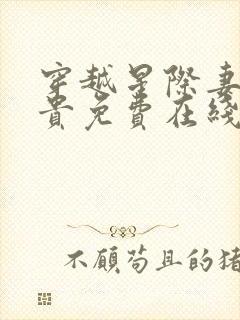 穿越星際妻
貴免費在綫
不顧苟且的猪